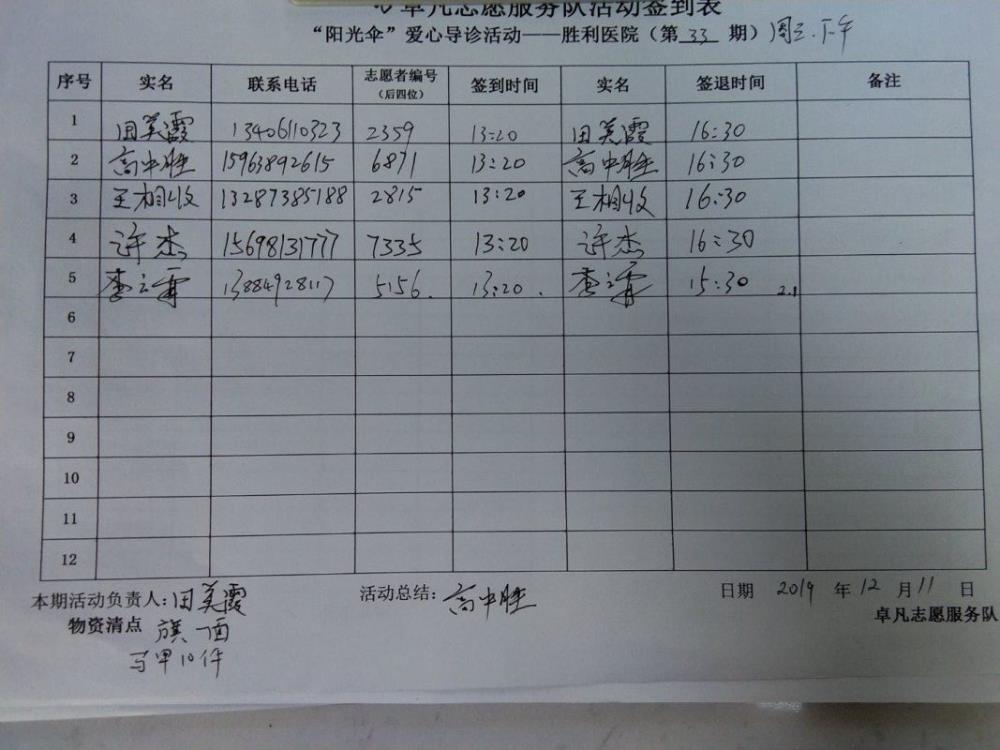 卓凡志愿服务队活动签到表
“阳光伞”爱心导诊活动——胜利医院（第 33 期）周三.下午
序号 实名 联系电话 志愿者编号（后四位） 签到时间 实名 签退时间 备注
1 田美霞 13406110323 2359 13:20 田美霞 16:30
2 高中胜 15963892615 6871 13:20 高中胜 16:30
3 王相收 13287385188 2815 13:20 王相收 16:30
4 许杰 15698131777 7335 13:20 许杰 16:30
5 李 13884928117 5156. 13:20. 李 15:30 2.1
6
7
8
9
10
11
12
本期活动负责人:田美霞 活动总结:高中胜 日期 2019 年 12 月 11 日
卓凡志愿服务队
物资清点 旗一面
马甲10件